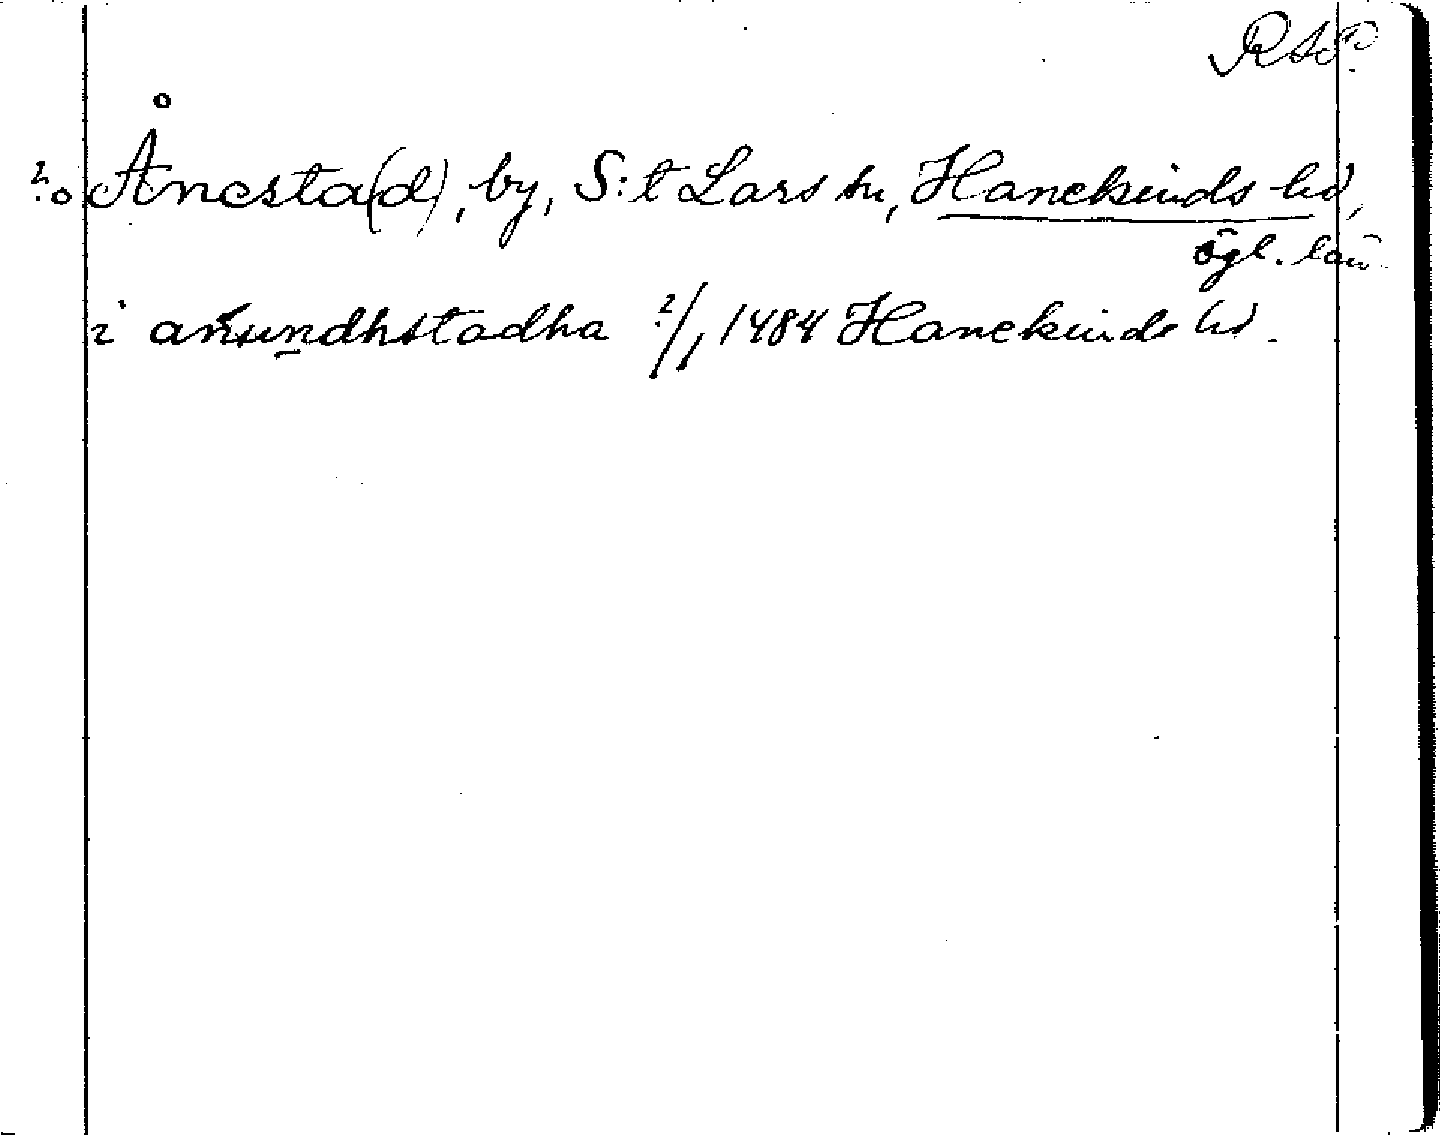 RAP.
?o Åncsta(d), by, S:t Lars sn, Hanekinds hd,
Ögl. län
i anundhstadha ?/, 1484 Hanekinds hd.